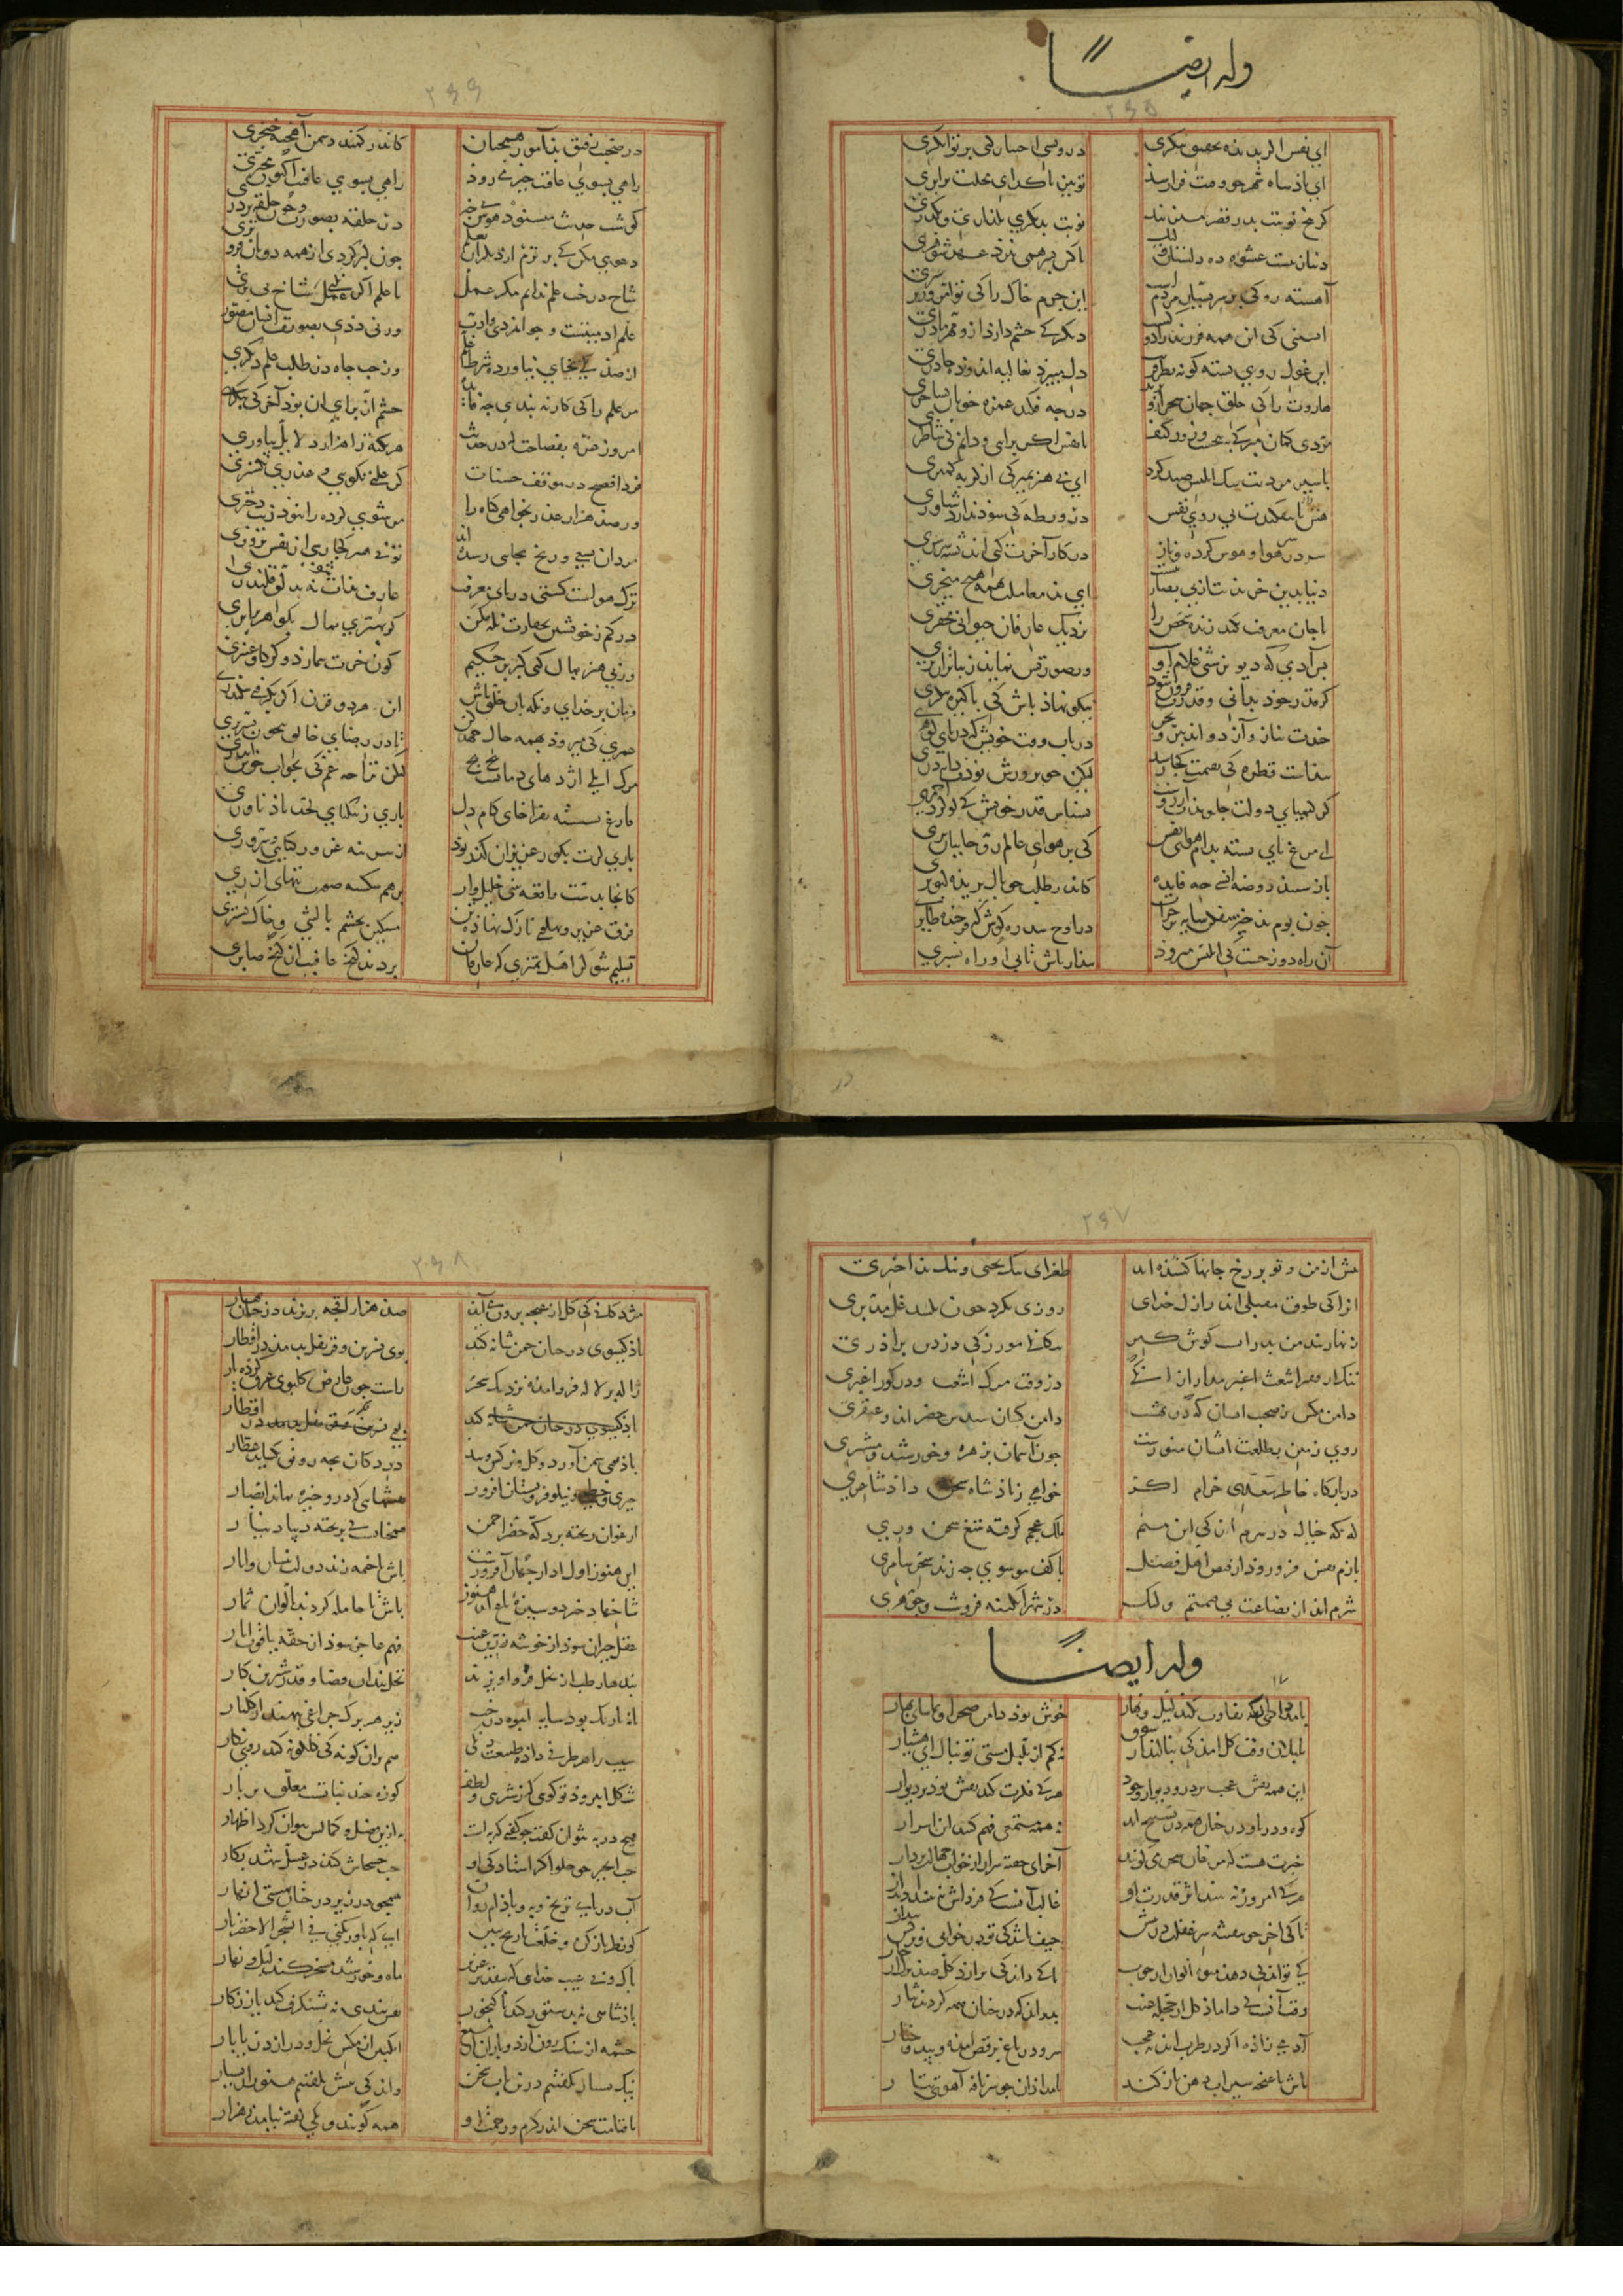 وله ایضاً
۲۶۵
ای نفس اگر بدیده تحقیق بنگری درویشی اختیار کنی بر توانگری
ای پادشاه شهر چو وقت فرا رسد تو نیز با گدای محلت برابری
گر پنج نوبت بدر قصر میزنند نوبت بدیگری بگذاری و بگذری
دنیا زنیست عشوه ده و دلستان ولیک با کس بسر همی نبرد عهد شوهری
آهسته رو که بر سر بسیار مردم است این جرم خاک را که تو امروز بر سری
آبستنی که این همه فرزند زاد و کشت دیگر که چشم دارد ازو مهر مادری
این غول روی بسته کوته نظر فریب دل میبرد بغالیه اندوده چادری
هاروت را که خلق جهان سحر ازو برند در چه فکند غمزه خوبان بساحری
مردی گمان مبر که بسرپنجه و زور کتف با نفس اگر برآیی دانم که شاطری
با شیر مردیت سگ ابلیس صید کرد ای بی هنر بمیر که از گربه کمتری
هش تا نیفکندت پی روی نفس در ورطه که سود ندارد شناوری
سر در سر هوا و هوس کرده و ناز در کار آخرت کنی اندیشه سرسری
دنیا بدین خریدنت از بی بصارتیست ای بد معاملت بهمه هیچ میخری
تا جان معرفت نکند زنده شخص را نزدیک عارفان حیوانی محقری
بس آدمی که دیو بزشتی غلام او ور صورتش نماید زیباتر از پری
گر قدر خود بدانی و قدرت فزون شود نیکو نهاد باش که پاکیزه پیکری
چندت نیاز و آز دواند ببر و بحر دریاب وقت خویش که دریای گوهری
پیداست قطره که بقیمت کجا رسد لیکن چو پرورش بودت دانه دری
گر کیمیای دولت جاویدت آرزوست بشناس قدر خویش که گوگرد احمری
ای مرغ پای بسته بدام هوای نفس کی بر هوای عالم روحانیان پری
باز سپید روضه انسی چه فایده کاندر طلب چو بال بریده کبوتری
چون بوم بد خبر مفکن سایه بر خراب در اوج سدره کوش که فرخنده طایری
آن راه دوزخست که ابلیس میرود بیدار باش تا پی او راه نسپری
۲۶۶
در صحبت رفیق بدآموز همچنان کاندر کمند دشمن آهخته خنجری
راهی بسوی عافیت خیر می رود راهی بسوی هاویه اکنون مخیری
گوشت حدیث میشنود هوش بی خبر در حلقه بصورت و چون حلقه بر دری
دعوی مکن که برترم از دیگران بعلم چون کبر کردی از همه دونان فروتری
شاخ درخت علم ندانم مگر عمل با علم اگر عمل نکنی شاخ بی بری
علم آدمیتست و جوانمردی و ادب ورنی ددی بصورت انسان مصوری
از صد یکی بجای نیاورده شرط علم وز حب جاه در طلب علم دیگری
هر علم را که کار نبندی چه فایده چشم از برای آن بود آخر که بنگری
امروز غره بفصاحت که در حدیث هر نکته را هزار دلایل بیاوری
فردا فصیح در موقف حسنات گر علتی نگویی و عذری بگستری
ور صد هزار عذر بخواهی گناه را مر شوی کرده را نبود زیب دختری
مردان بسعی و رنج بجایی رسیده اند تو بی هنر کجا رسی از نفس پروری
ترک هواست کشتی دریای معرفت عارف بذات شو نه بدلق قلندری
در کم ز خویشتن بحقارت نگه مکن گر بهتری بمال بگوهر برابری
ور بی هنر بمال کنی کبر بر حکیم کون خرت شمارد وگر گاو عنبری
فرمان بر خدای و نگهبان خلق باش این هر دو قرن اگر بگرفتی سکندری
عمری که میرود بهمه حال جهد کن تا در رضای خالق بیچون بسر بری
مرگ اینک اژدهای دمانست پیچ پیچ لیکن ترا چه غم که بخواب خوش اندری
فارغ نشسته بفراخای کام دل باری ز تنگنای لحد یاد ناوری
باری گرت بگور عزیزان گذر بود از سر بنه غرور کیایی و سروری
کانجا بدست واقعه بینی خلیل وار برهم شکسته صورت بتهای آزری
فرق عزیز و پهلوی نازک نهاده تن مسکین بخشت بالشی و خاک بستری
تسلیم شو گر اهل تمیزی که عارفان بردند گنج عافیت از کنج صابری
۲۶۷
پیش از من و تو بر رخ جانها کشیده اند طغرای نیک بختی و نیل بد اختری
آنرا که طوق مقبلی اندر ازل خدای روزی نکرد چون نکشد غل مدبری
زنهار پند من پدرانست گوش گیر بیگانگی مورز که در دین برادری
ننگ از فقیر اشعث اغبر مدار از آنک در وقت مرگ اشعث و در گور اغبری
دامن مکش ز صحبت ایشان که در بهشت دامن کشان سندس خضراند و عبقری
روی زمین بطلعت ایشان منورست چون آسمان بزهره و خورشید و مشتری
در بارگاه خاطر سعدی خرام اگر خواهی ز پادشاه سخن داد شاعری
گه گه خیال در سرم آید که این منم ملک عجم گرفته بتیغ سخن وری
بازم نفس فرو رود از هول اهل فضل با کف موسوی چه زند سحر سامری
شرم آید از بضاعت بی قیمتم ولیک در شهر آبگینه فروشست و جوهری
وله ایضاً
بامدادی که تفاوت نکند لیل و نهار خوش بود دامن صحرا و تماشای بهار
بلبلان وقت گل آمد که بنالند از شوق نه کم از بلبل مستی تو بنال ای هشیار
این همه نقش عجب بر در و دیوار وجود هر که فکرت نکند نقش بود بر دیوار
کوه و دریا و درختان همه در تسبیح اند نه همه مستمعی فهم کند این اسرار
خبرت هست که مرغان سحر می گویند آخر ای خفته سر از خواب جهالت بردار
هر که امروز نبیند اثر قدرت او غالب آنست که فرداش نبیند دیدار
تا کی آخر چو بنفشه سر غفلت در پیش حیف باشد که تو در خوابی و نرگس بیدار
که تواند که دهد میوه الوان از چوب یا که داند که برآرد گل صدبرگ از خار
وقت آنست که داماد گل از حجله غیب بدر آید که درختان همه کردند نثار
آدمی زاده اگر در طرب آید نه عجب سرو در باغ برقص آمده و بید و چنار
باش تا غنچه سیراب دهن باز کند بامدادان چو سر نافه آهوی تتار
۲۶۸
مژدگانی که گل از غنچه برون می آید صد هزار اقچه بریزند درختان بهار
باد گیسوی درختان چمن شانه کند بوی نسرین و قرنفل بدمد در اقطار
ژاله بر لاله فرود آمده نزدیک سحر راست چون عارض گلبوی عرق کرده یار
باد گیسوی درختان چمن شانه کند بوی نسرین و قرنفل بدمد در اقطار
باد بوی سمن آورد و گل و نرگس و بید در دکان بچه رونق بگشاید عطار
خیری و خطمی و نیلوفر بستان افروز نقشهایی که درو خیره بماند ابصار
ارغوان ریخته بر دکه خضراء چمن همچنانست که بر تخته دیبا دینار
این هنوز اول آزار جهان افروزست باش تا خیمه زند دولت نیسان و ایار
شاخها دختر دوشیزه باغ اند هنوز باش تا حامله گردند بالوان ثمار
عقل حیران شود از خوشه زرین عنب فهم عاجز شود از حقه یاقوت انار
بندهای رطب از نخل فرو آویزند نخلبندان قضا و قدر شیرین کار
تا نه تاریک بود سایه انبوه درخت زیر هر برگ چراغی بنهند از گلنار
سیب را هر طرفی داده طبیعت رنگی هم بران گونه که گلگونه کند روی نگار
شکل امرود تو گویی که ز شیرینی و لطف کوزه چند نباتست معلق بر بار
هیچ در به نتوان گفت چو گفتی که به است به ازین فضل و کمالش نتوان کرد اظهار
حشو انجیر چو حلواگر استاد که او حب خشخاش کند در عسل شهد بکار
آب در پای ترنج و به و بادام روان همچو در زیر درختان بهشتی انهار
گو نظر باز کن و خلقت نارنج ببین ای که باور نکنی فی الشجر الاخضر نار
پاک و بی عیب خدایی که بتقدیر عزیز ماه و خورشید مسخر کند و لیل و نهار
پادشاهی نه بدستور کند یا گنجور نقش بندی نه بشنگرف کند یا زنگار
چشمه از سنگ برون آرد و باران از میغ انگبین از مگس نحل و در از دریا بار
نیک بسیار بگفتیم درین باب سخن واندکی بیش نگفتیم هنوز از بسیار
تا قیامت سخن اندر کرم و رحمت او همه گویند و یکی گفته نیاید ز هزار